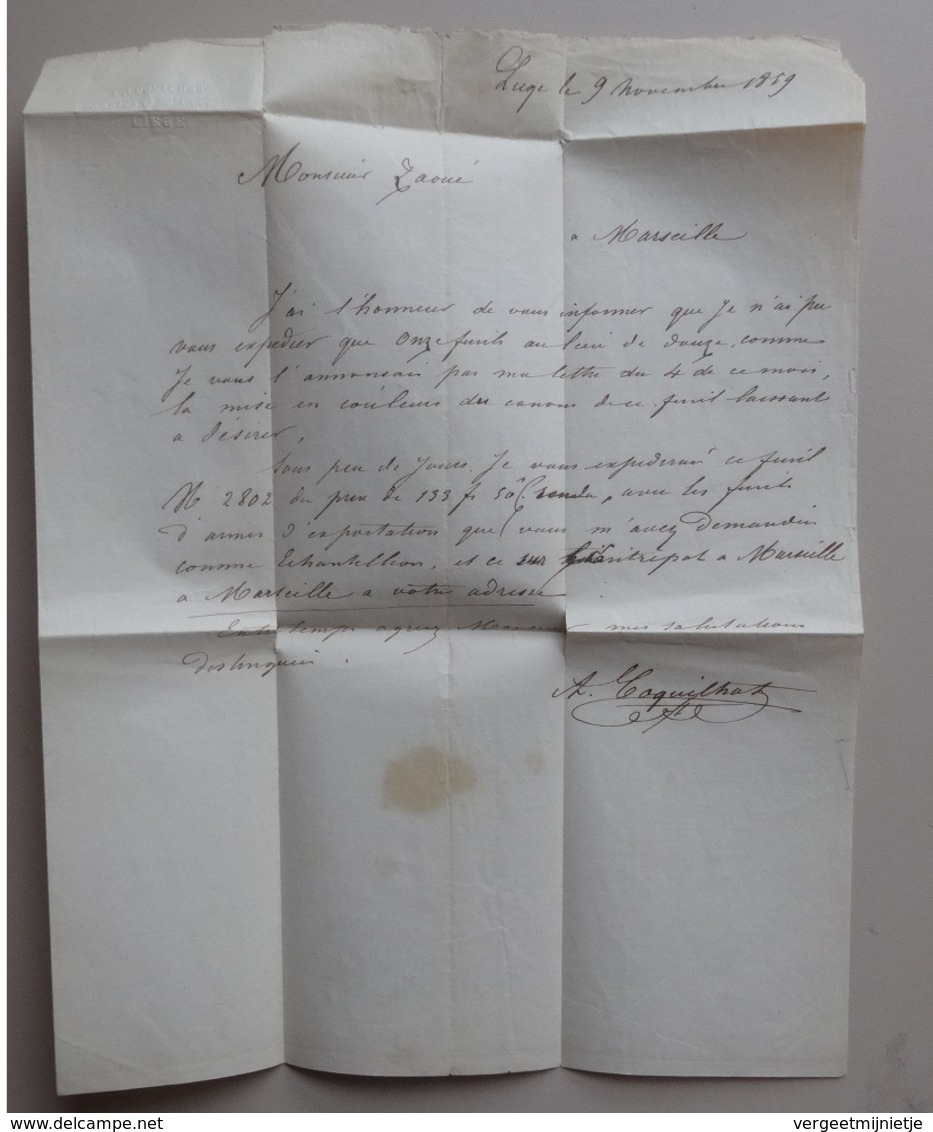 Liege le 9 Novembre 1859
LIEGE
Monsieur Zaoué
a Marseille
J'ai l'honneur de vous informer que Je n'ai pu
vous expedier que Onze fusils au lieu de douze, comme
Je vous l'annoncais par ma lettre du 4 de ce mois,
la mise en couleur des canons de ce fusil laissant
a désirer,
Sous peu de Jours Je vous expedierai ce fusil
N 2802 du prix de 133 fs 50 rendu, avec les fusils
d'armes d'exportation que vous m'avez demandés
comme Echantillon, et ce entrepot a Marseille
a Marseille a votre adresse
Entre temps agreez Monsieur mes salutations
distinguées.
A. Coquilhat
delcampe.net
vergeetmijnietje